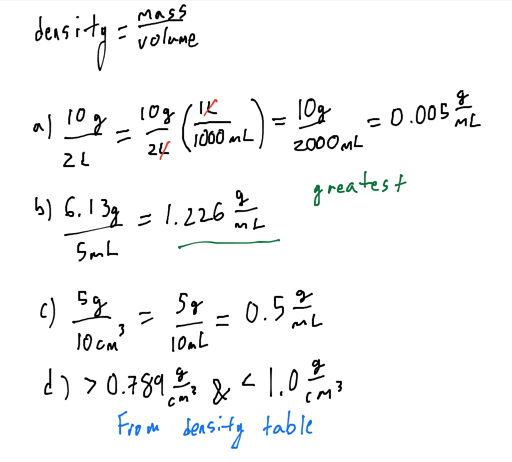 density = mass/volume
a) 10 g/2 L = 10 g/2 L (1 L/1000 mL) = 10 g/2000 mL = 0.005 g/mL
greatest
b) 6.13 g/5 mL = 1.226 g/mL
c) 5 g/10 cm³ = 5 g/10 mL = 0.5 g/mL
d) > 0.789 g/cm³ & < 1.0 g/cm³
From density table